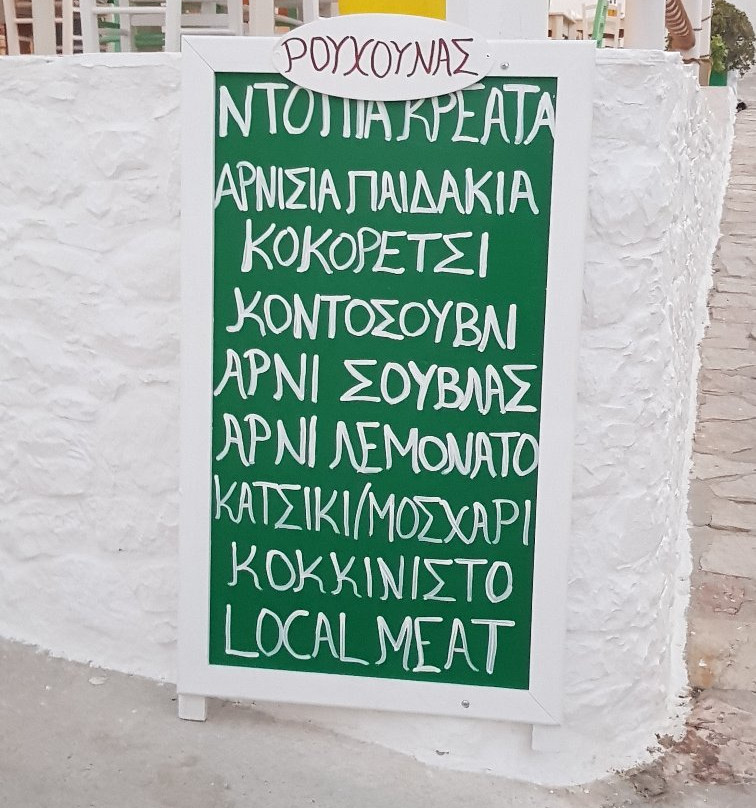 ΡΟΥΧΟΥΝΑΣ
ΝΤΟΠΙΑ ΚΡΕΑΤΑ
ΑΡΝΙΣΙΑ ΠΑΙΔΑΚΙΑ
ΚΟΚΟΡΕΤΣΙ
ΚΟΝΤΟΣΟΥΒΛΙ
ΑΡΝΙ ΣΟΥΒΛΑΣ
ΑΡΝΙ ΛΕΜΟΝΑΤΟ
ΚΑΤΣΙΚΙ/ΜΟΣΧΑΡΙ
ΚΟΚΚΙΝΙΣΤΟ
LOCAL MEAT